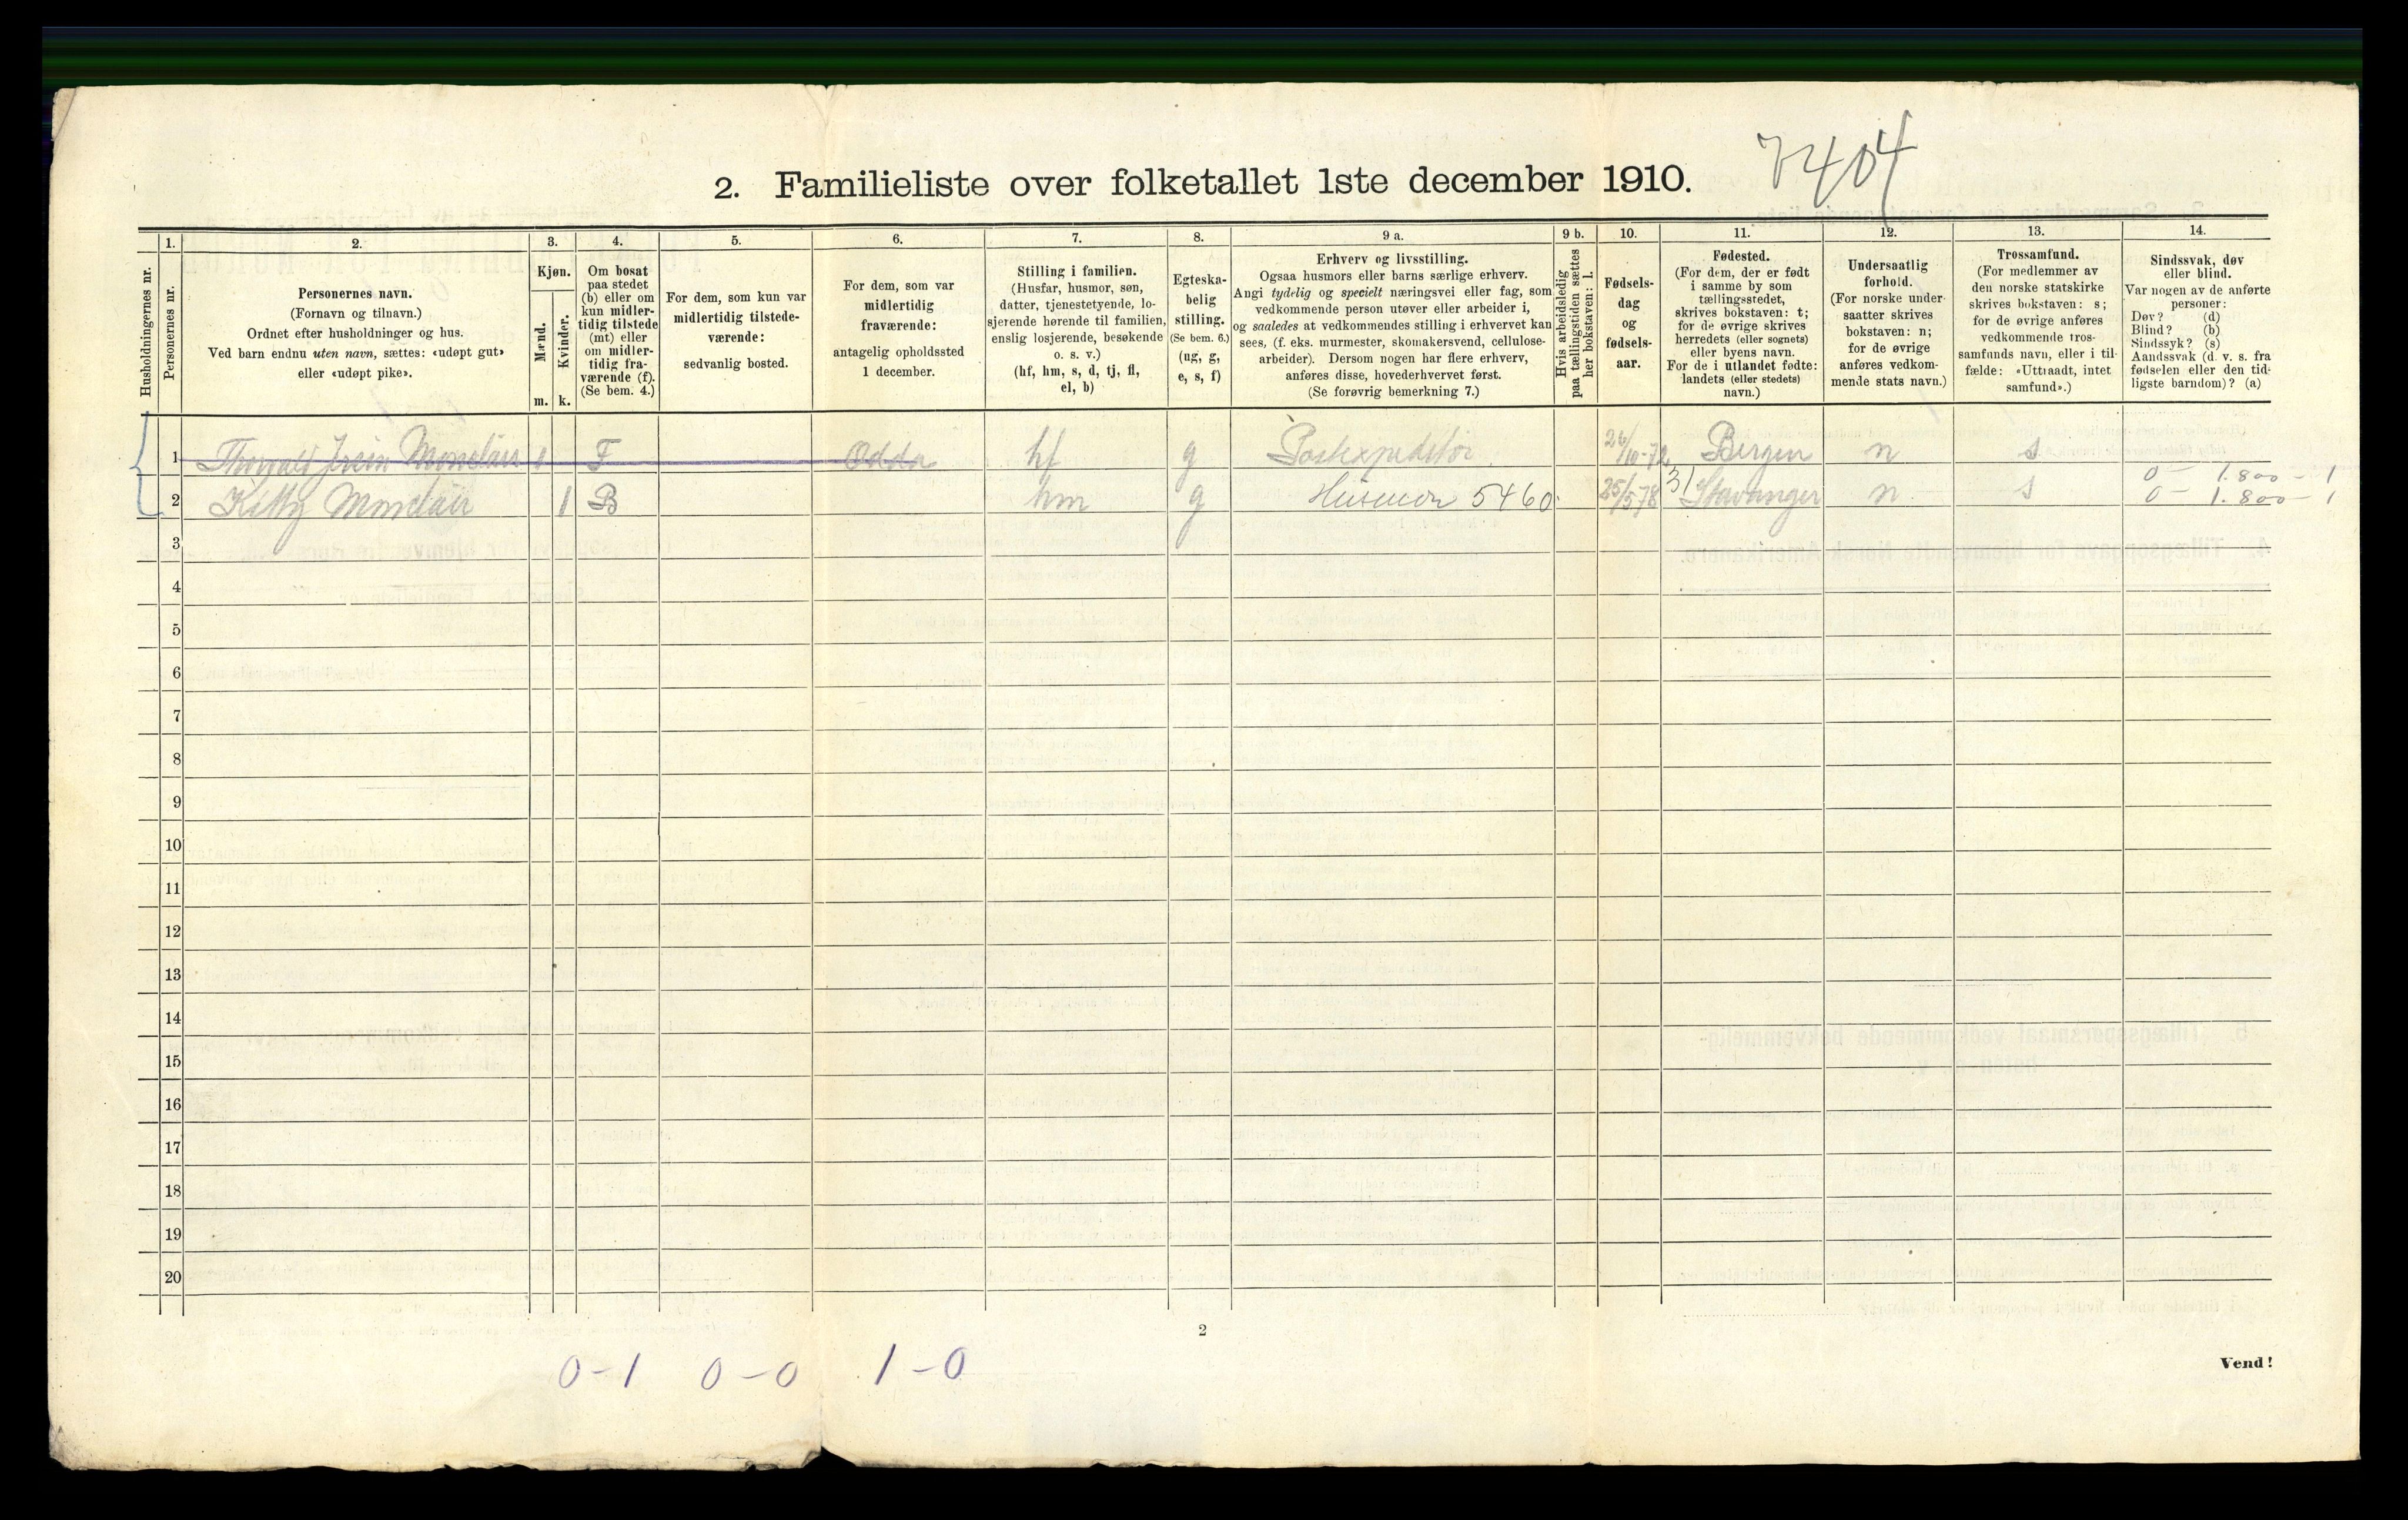 7404
2. Familieliste over folketallet 1ste december 1910.
Husholdningernes nr.
1.
Personernes nr.
2.
Personernes navn.
(Fornavn og tilnavn.)
Ordnet efter husholdninger og hus.
Ved barn endnu uten navn, sættes: «udøpt gut»
eller «udøpt pike».
3.
Kjøn.
Mænd.
Kvinder.
m. k.
4.
Om bosat
paa stedet
(b) eller om
kun midler-
tidig tilstede
(mt) eller
om midler-
tidig fra-
værende (f).
(Se bem. 4.)
5.
For dem, som kun var
midlertidig tilstede-
værende:
sedvanlig bosted.
6.
For dem, som var
midlertidig
fraværende:
antagelig opholdssted
1 december.
7.
Stilling i familien.
(Husfar, husmor, søn,
datter, tjenestetyende, lo-
sjerende hørende til familien,
enslig losjerende, besøkende
o. s. v.)
(hf, hm, s, d, tj, fl,
el, b)
8.
Egteska-
belig
stilling.
(Se bem. 6.)
(ug, g,
e, s, f)
9 a.
Erhverv og livsstilling.
Ogsaa husmors eller barns særlige erhverv.
Angi tydelig og specielt næringsvei eller fag, som
vedkommende person utøver eller arbeider i,
og saaledes at vedkommendes stilling i erhvervet kan
sees, (f. eks. murmester, skomakersvend, cellulose-
arbeider). Dersom nogen har flere erhverv,
anføres disse, hovederhvervet først.
(Se forøvrig bemerkning 7.)
9 b.
Hvis arbeidsledig
paa tællingstiden sættes
her bokstaven: l.
10.
Fødsels-
dag
og
fødsels-
aar.
11.
Fødested.
(For dem, der er født
i samme by som
tællingsstedet,
skrives bokstaven: t;
for de øvrige skrives
herredets (eller sognets)
eller byens navn.
For de i utlandet fødte:
landets (eller stedets)
navn.)
12.
Undersaatlig
forhold.
(For norske under-
saatter skrives
bokstaven: n;
for de øvrige
anføres vedkom-
mende stats navn.)
13.
Trossamfund.
(For medlemmer av
den norske statskirke
skrives bokstaven: s;
for de øvrige anføres
vedkommende tros-
samfunds navn, eller i til-
fælde: «Uttraadt, intet
samfund».)
14.
Sindssvak, døv
eller blind.
Var nogen av de anførte
personer:
Døv? (d)
Blind? (b)
Sindssyk? (s)
Aandssvak (d. v. s. fra
fødselen eller den tid-
ligste barndom)? (a)
1 1 F Odda hf g Postexpeditør 26/10-72 Bergen n s 0 - 1.800 - 1
2 Kitty 1 B hm g Husmor 5460 25/5 78 31 Stavanger n s 0 - 1.800 - 1
3
4
5
6
7
8
9
10
11
12
13
14
15
16
17
18
19
20
2
0-1 0-0 1-0
Vend!